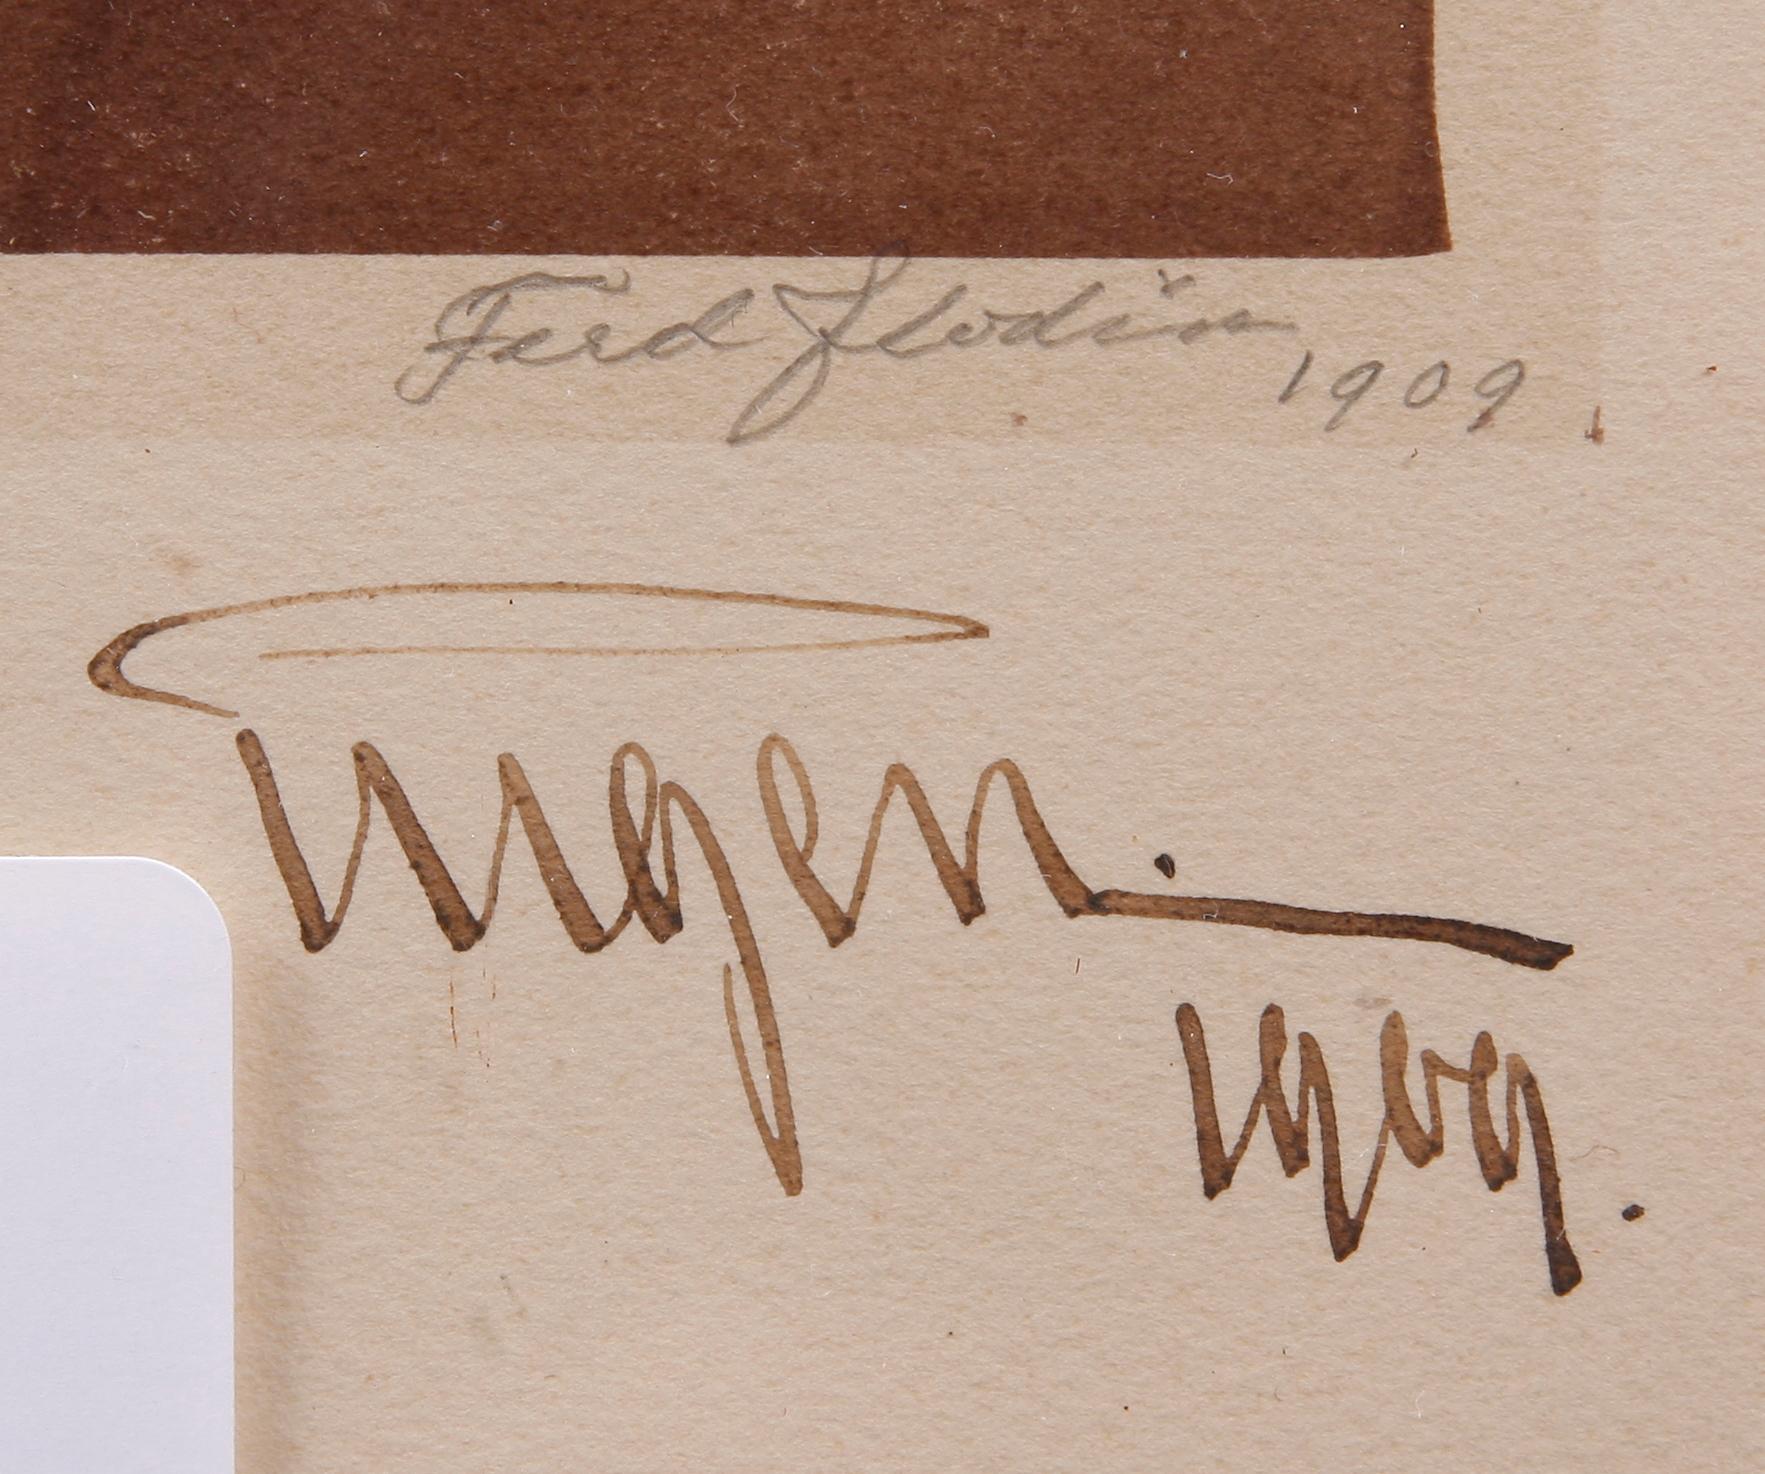 Ferd Flodin
1909
Eugen.
1909.